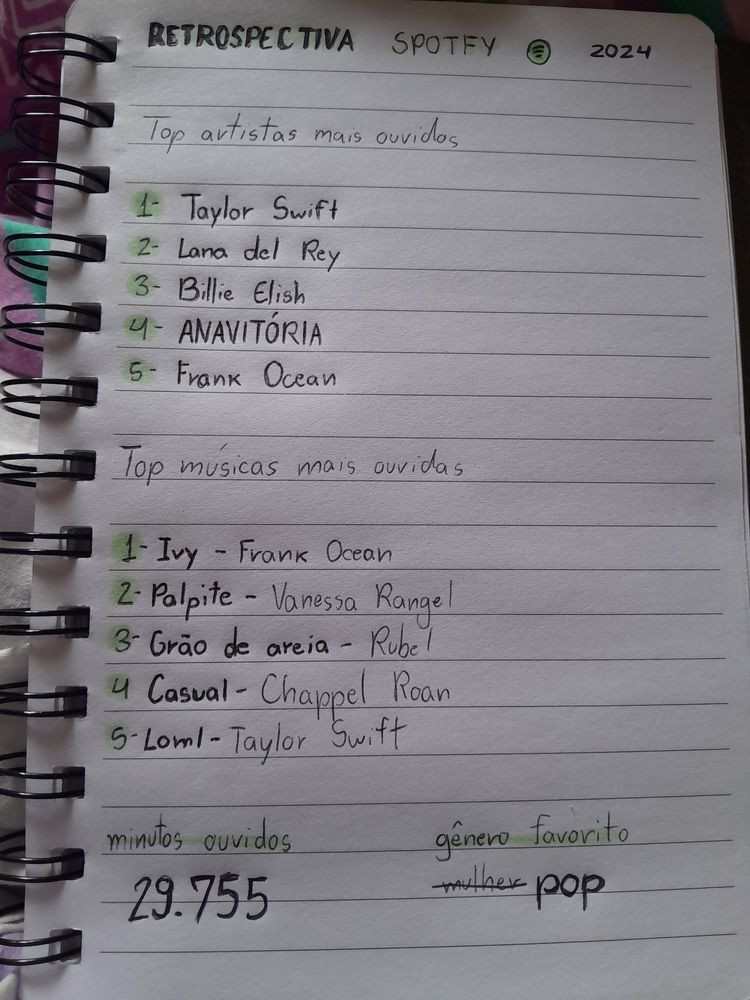 RETROSPECTIVA SPOTFY 2024
Top artistas mais ouvidos
1- Taylor Swift
2- Lana del Rey
3- Billie Elish
4- ANAVITÓRIA
5- Frank Ocean
Top músicas mais ouvidas
1- Ivy - Frank Ocean
2- Palpite - Vanessa Rangel
3- Grão de areia - Rubel
4 Casual - Chappel Roan
5- Loml - Taylor Swift
minutos ouvidos gênero favorito
29.755 mulher pop